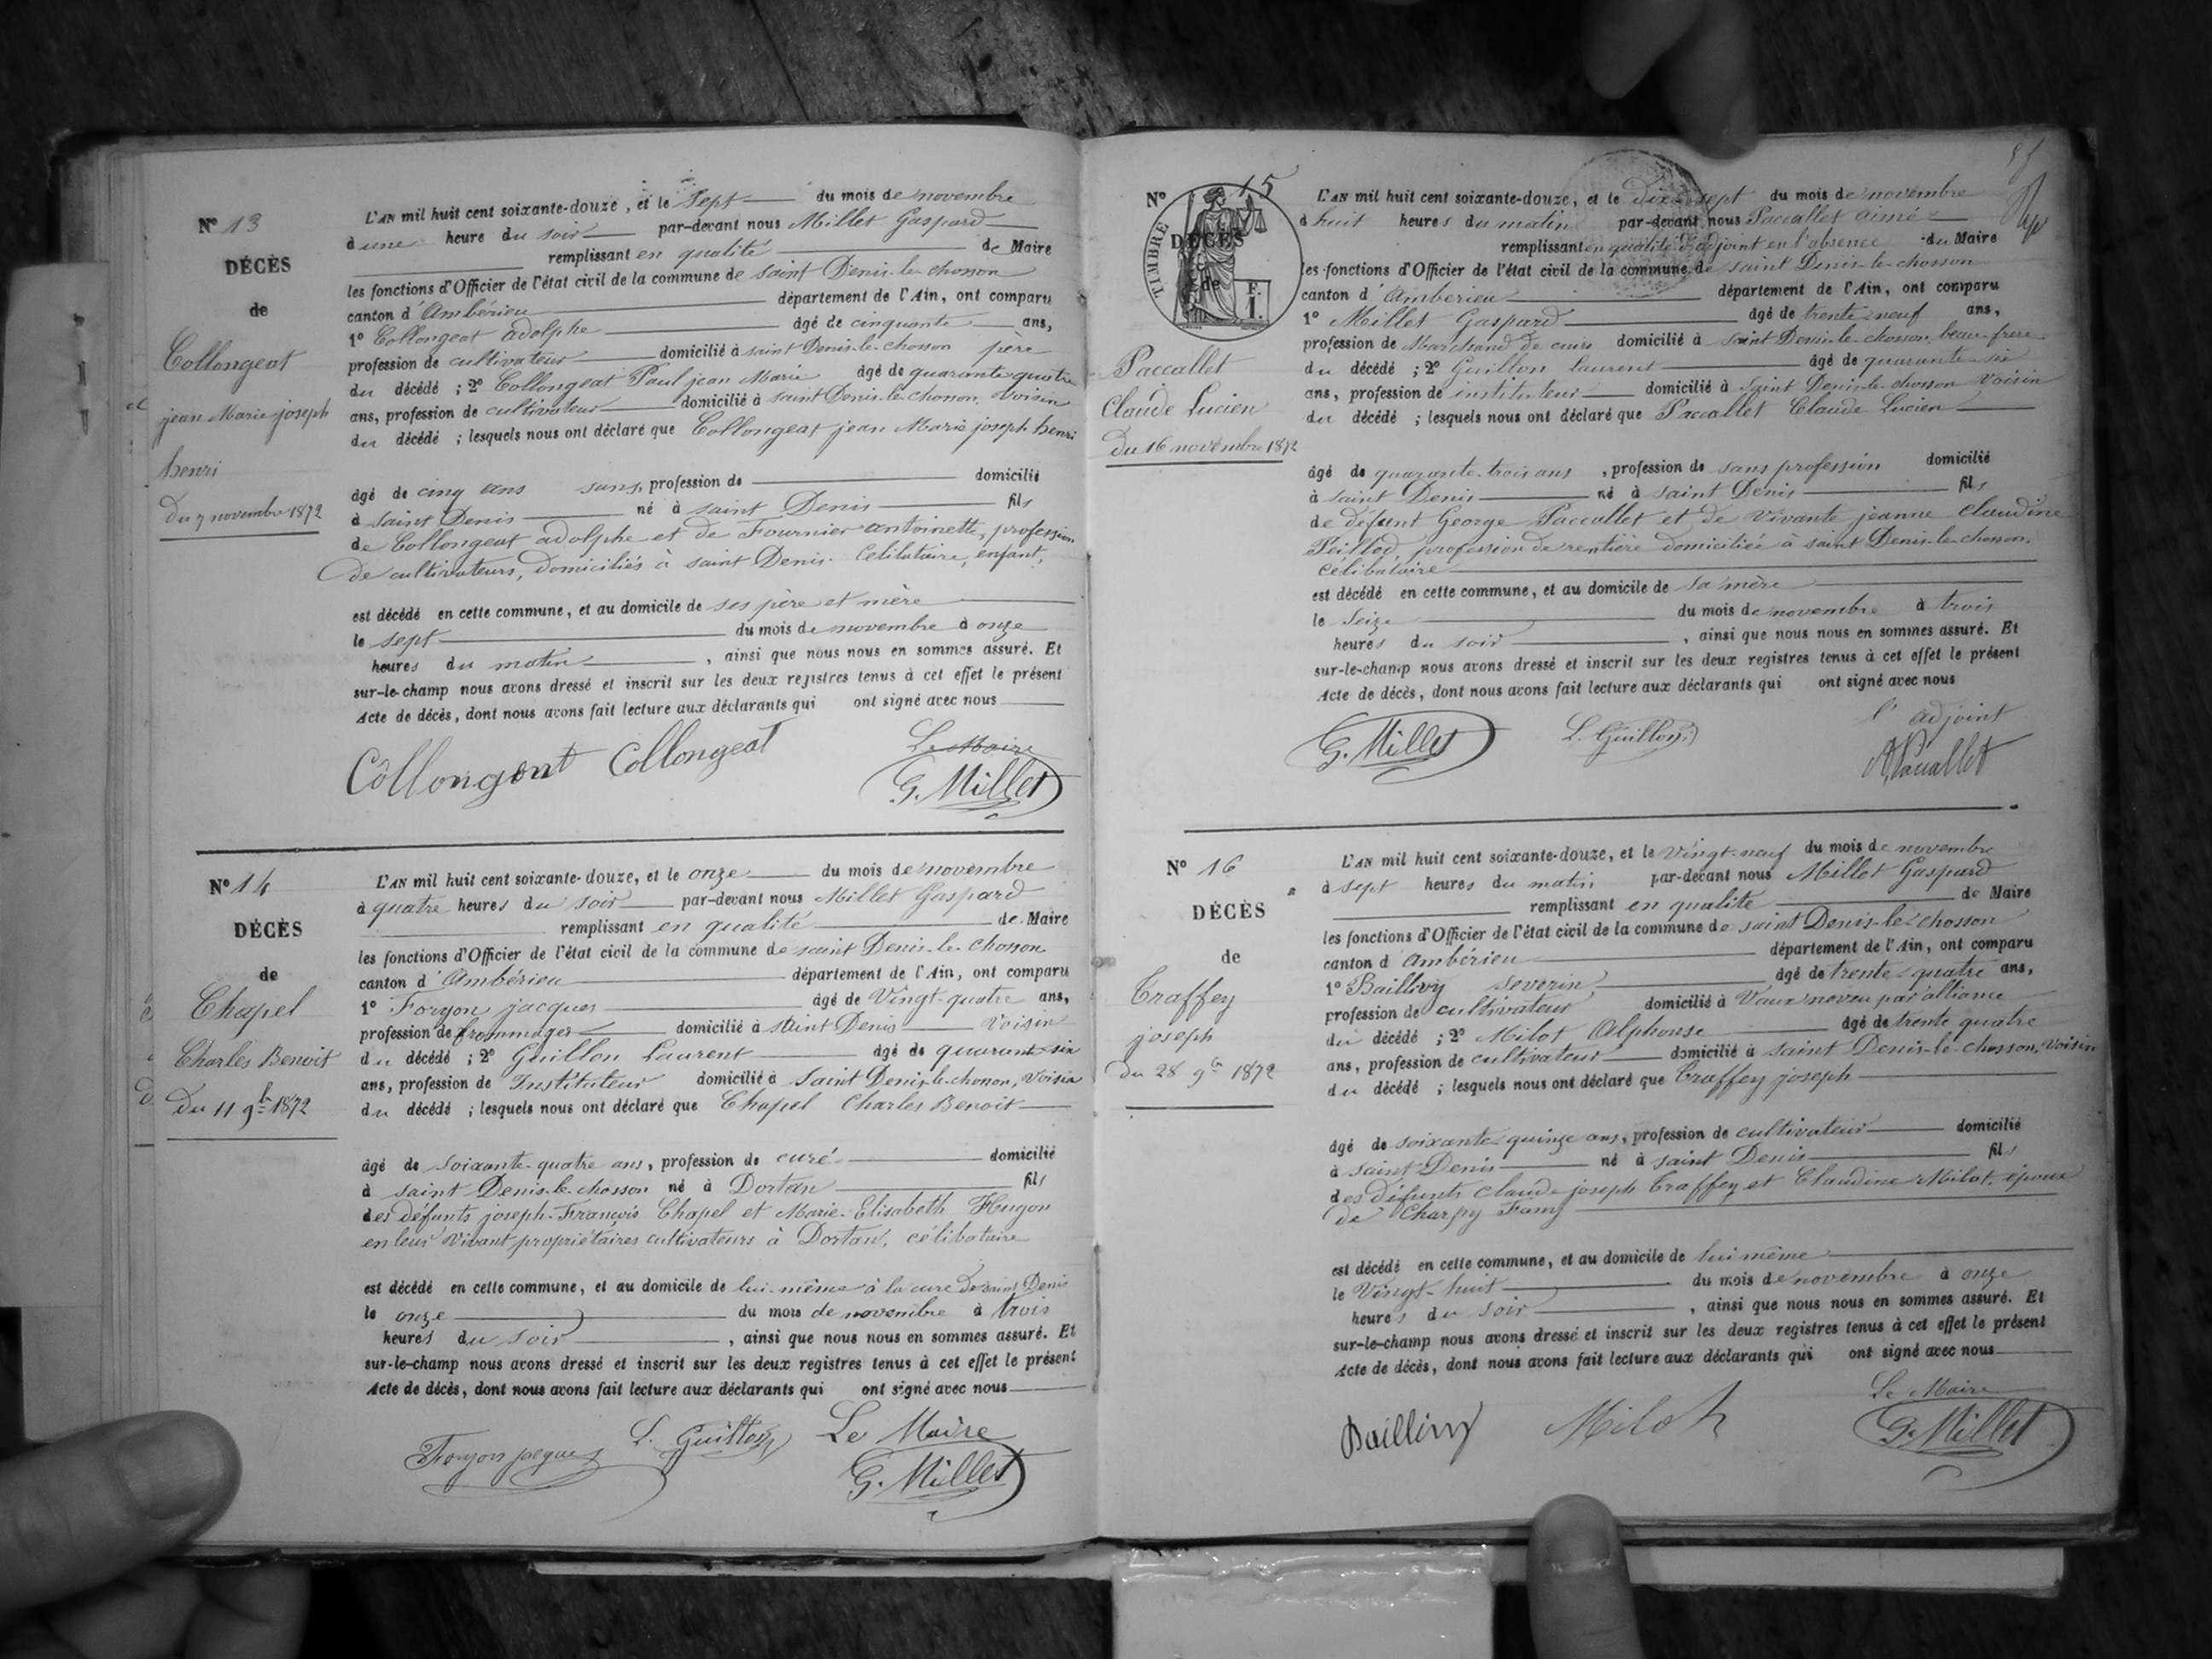 N° 13
DÉCÈS
de
Collongeat
jean Marie joseph
henri
du 7 novembre 1872
L'AN mil huit cent soixante-douze, et le sept du mois de novembre
à une heure du soir par-devant nous Millet Gaspard
remplissant en qualité de Maire
les fonctions d'Officier de l'état civil de la commune de saint Denis-le-chosson
canton d'Ambérieu département de l'Ain, ont comparu
1° Collongeat adolphe âgé de cinquante ans,
profession de cultivateur domicilié à saint Denis-le-chosson père
du décédé ; 2° Collongeat Paul jean Marie âgé de quarante quatre
ans, profession de cultivateur domicilié à saint Denis-le-chosson, voisin
du décédé ; lesquels nous ont déclaré que Collongeat jean Marie joseph henri
âgé de cinq ans sans profession de domicilié
à saint Denis né à saint Denis fils
de Collongeat adolphe et de Fournier antoinette, profession
de cultivateurs, domiciliés à saint Denis. Célibataire, enfant,
est décédé en cette commune, et au domicile de ses père et mère
le sept du mois de novembre à onze
heures du matin, ainsi que nous nous en sommes assuré. Et
sur-le-champ nous avons dressé et inscrit sur les deux registres tenus à cet effet le présent
Acte de décès, dont nous avons fait lecture aux déclarants qui ont signé avec nous
Le Maire
Collongeat Collongeat G. Millet
N° 14
DÉCÈS
de
Chapel
Charles Benoit
Du 11 9bre 1872
L'AN mil huit cent soixante-douze, et le onze du mois de novembre
à quatre heures du soir par-devant nous Millet Gaspard
remplissant en qualité de Maire
les fonctions d'Officier de l'état civil de la commune de saint Denis-le-chosson
canton d'Ambérieu département de l'Ain, ont comparu
1° Forgon jacques âgé de Vingt-quatre ans,
profession de frommager domicilié à saint Denis Voisin
du décédé ; 2° Guillon Laurent âgé de quarante-six
ans, profession de Instituteur domicilié à Saint Denis-le-chosson, Voisin
du décédé ; lesquels nous ont déclaré que Chapel Charles Benoit
âgé de soixante-quatre ans, profession de curé domicilié
à saint Denis-le-chosson né à Dortan fils
des défunts joseph-François Chapel et Marie-Elisabeth Hugon
en leur vivant propriétaires cultivateurs à Dortan, célibataire
est décédé en cette commune, et au domicile de lui-même à la cure de saint Denis
le onze du mois de novembre à trois
heures du soir, ainsi que nous nous en sommes assuré. Et
sur-le-champ nous avons dressé et inscrit sur les deux registres tenus à cet effet le présent
Acte de décès, dont nous avons fait lecture aux déclarants qui ont signé avec nous
L. Guillon Le Maire
G. Millet
N° 15
TIMBRE
DÉCÈS
de
F.
1.
Paccallet
Claude Lucien
Du 16 novembre 1872
L'AN mil huit cent soixante-douze, et le dix-sept du mois de novembre
à huit heures du matin par-devant nous Paccallet aimé
remplissant en qualité d'adjoint en l'absence du Maire
les fonctions d'Officier de l'état civil de la commune de saint Denis-le-chosson
canton d'Ambérieu département de l'Ain, ont comparu
1° Millet Gaspard âgé de trente-neuf ans,
profession de Marchand de cuirs domicilié à saint Denis-le-chosson, beau-frère
du décédé ; 2° Guillon laurent âgé de quarante-six
ans, profession de instituteur domicilié à Saint Denis-le-chosson Voisin
du décédé ; lesquels nous ont déclaré que Paccallet Claude Lucien
âgé de quarante-trois ans, profession de sans profession domicilié
à saint Denis né à saint Denis fils
de défunt George Paccallet et de vivante jeanne Claudine
Peillod, profession de rentière domiciliée à saint Denis-le-chosson.
célibataire
est décédé en cette commune, et au domicile de sa mère
le Seize du mois de novembre à trois
heures du soir, ainsi que nous nous en sommes assuré. Et
sur-le-champ nous avons dressé et inscrit sur les deux registres tenus à cet effet le présent
Acte de décès, dont nous avons fait lecture aux déclarants qui ont signé avec nous
l'adjoint
G. Millet L. Guillon A. Paccallet
N° 16
DÉCÈS
de
Traffey
joseph
du 28 9bre 1872
L'AN mil huit cent soixante-douze, et le vingt-neuf du mois de novembre
à sept heures du matin par-devant nous Millet Gaspard
remplissant en qualité de Maire
les fonctions d'Officier de l'état civil de la commune de saint Denis-le-chosson
canton d'Ambérieu département de l'Ain, ont comparu
1° Baillivy severin âgé de trente-quatre ans,
profession de cultivateur domicilié à Vaux neveu par alliance
du décédé ; 2° Milot Alphonse âgé de trente quatre
ans, profession de cultivateur domicilié à saint Denis-le-chosson, Voisin
du décédé ; lesquels nous ont déclaré que Traffey joseph
âgé de soixante-quinze ans, profession de cultivateur domicilié
à saint Denis né à saint Denis fils
des défunts claude joseph Traffey et Claudine Milot, époux
de Charpy
est décédé en cette commune, et au domicile de lui même
le Vingt-huit du mois de novembre à onze
heures du soir, ainsi que nous nous en sommes assuré. Et
sur-le-champ nous avons dressé et inscrit sur les deux registres tenus à cet effet le présent
Acte de décès, dont nous avons fait lecture aux déclarants qui ont signé avec nous
Le Maire
Baillivy Milot G. Millet